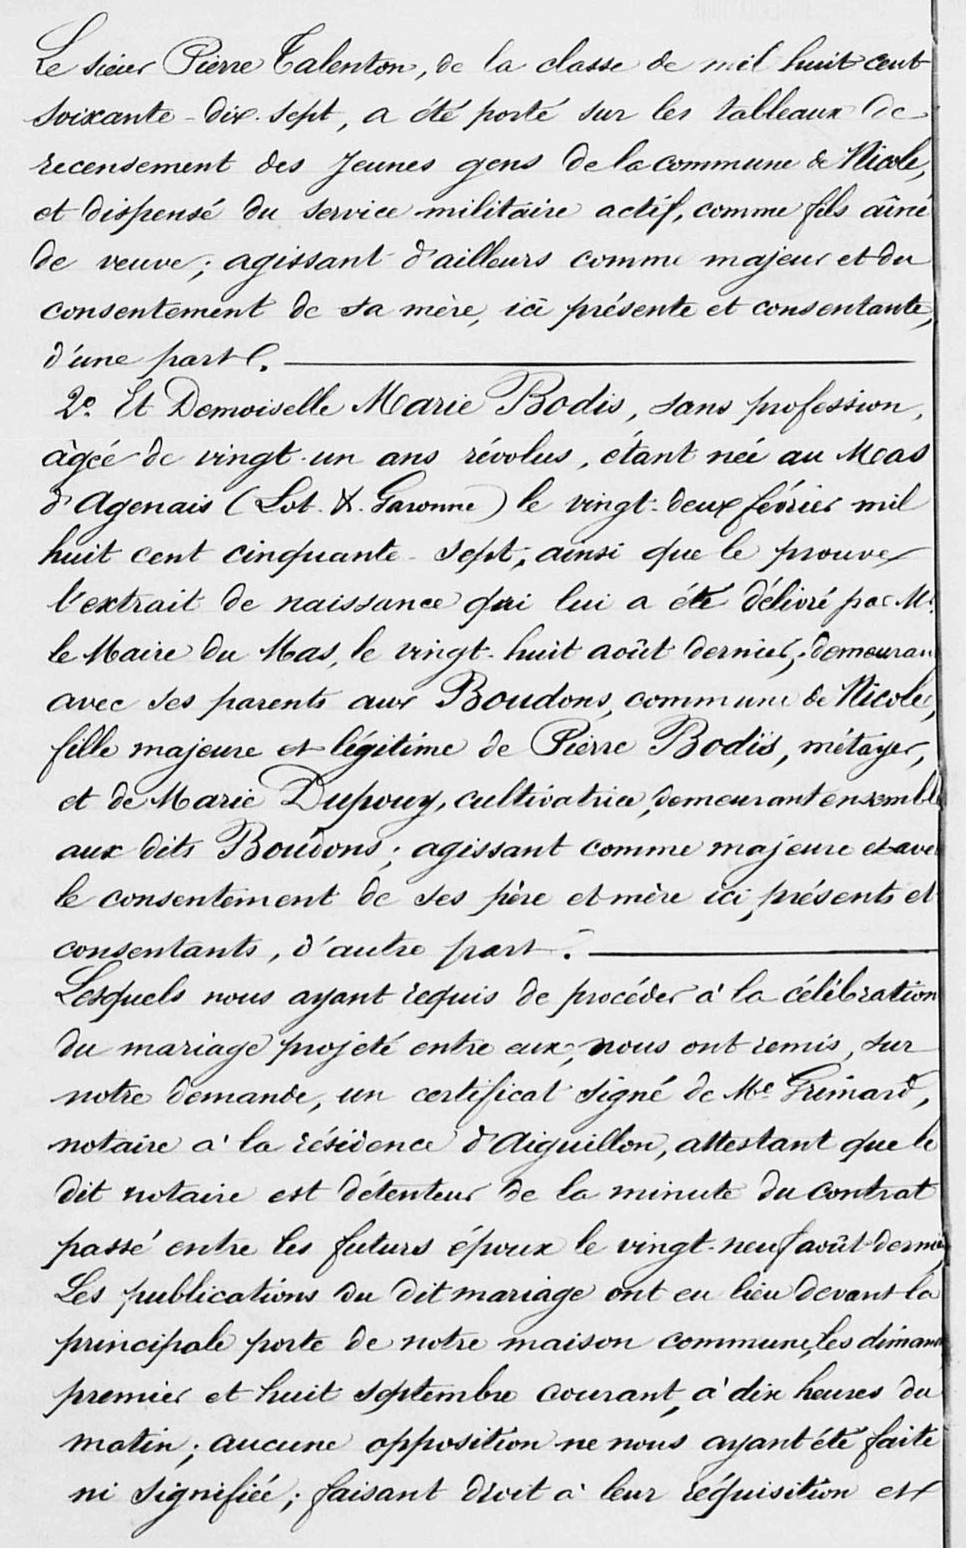 Le sieur Pierre Talenton, de la classe de mil huit cent
soixante-dix-sept, a été porté sur les tableaux de
recensement des jeunes gens de la commune de Nicole,
et dispensé du service militaire actif, comme fils aîné
de veuve; agissant d'ailleurs comme majeur et du
consentement de sa mère, ici présente et consentante,
d'une part.
2º. Et Demoiselle Marie Bodis, sans profession,
âgée de vingt-un ans révolus, étant née au Mas
d'Agenais (Lot-&-Garonne) le vingt-deux février mil
huit cent cinquante-sept, ainsi que le prouve
l'extrait de naissance qui lui a été délivré par Mr.
le Maire du Mas, le vingt-huit août dernier, demeuran
avec ses parents aux Boudons, commune de Nicole,
fille majeure et légitime de Pierre Bodis, métayer,
et de Marie Dupouy, cultivatrice, demeurant ensemble
aux dits Boudons; agissant comme majeure et avec
le consentement de ses père et mère ici présents et
consentants, d'autre part.
Lesquels nous ayant requis de procéder à la célébration
du mariage projeté entre eux, nous ont remis, sur
notre demande, un certificat signé de Me Grimard,
notaire à la résidence d'Aiguillon, attestant que le
dit notaire est détenteur de la minute du contrat
passé entre les futurs époux le vingt-neuf août dernier,
Les publications du dit mariage ont eu lieu devant la
principale porte de notre maison commune, les diman
premier et huit septembre courant, à dix heures du
matin; aucune opposition ne nous ayant été faite
ni signifiée; faisant droit à leur réquisition et